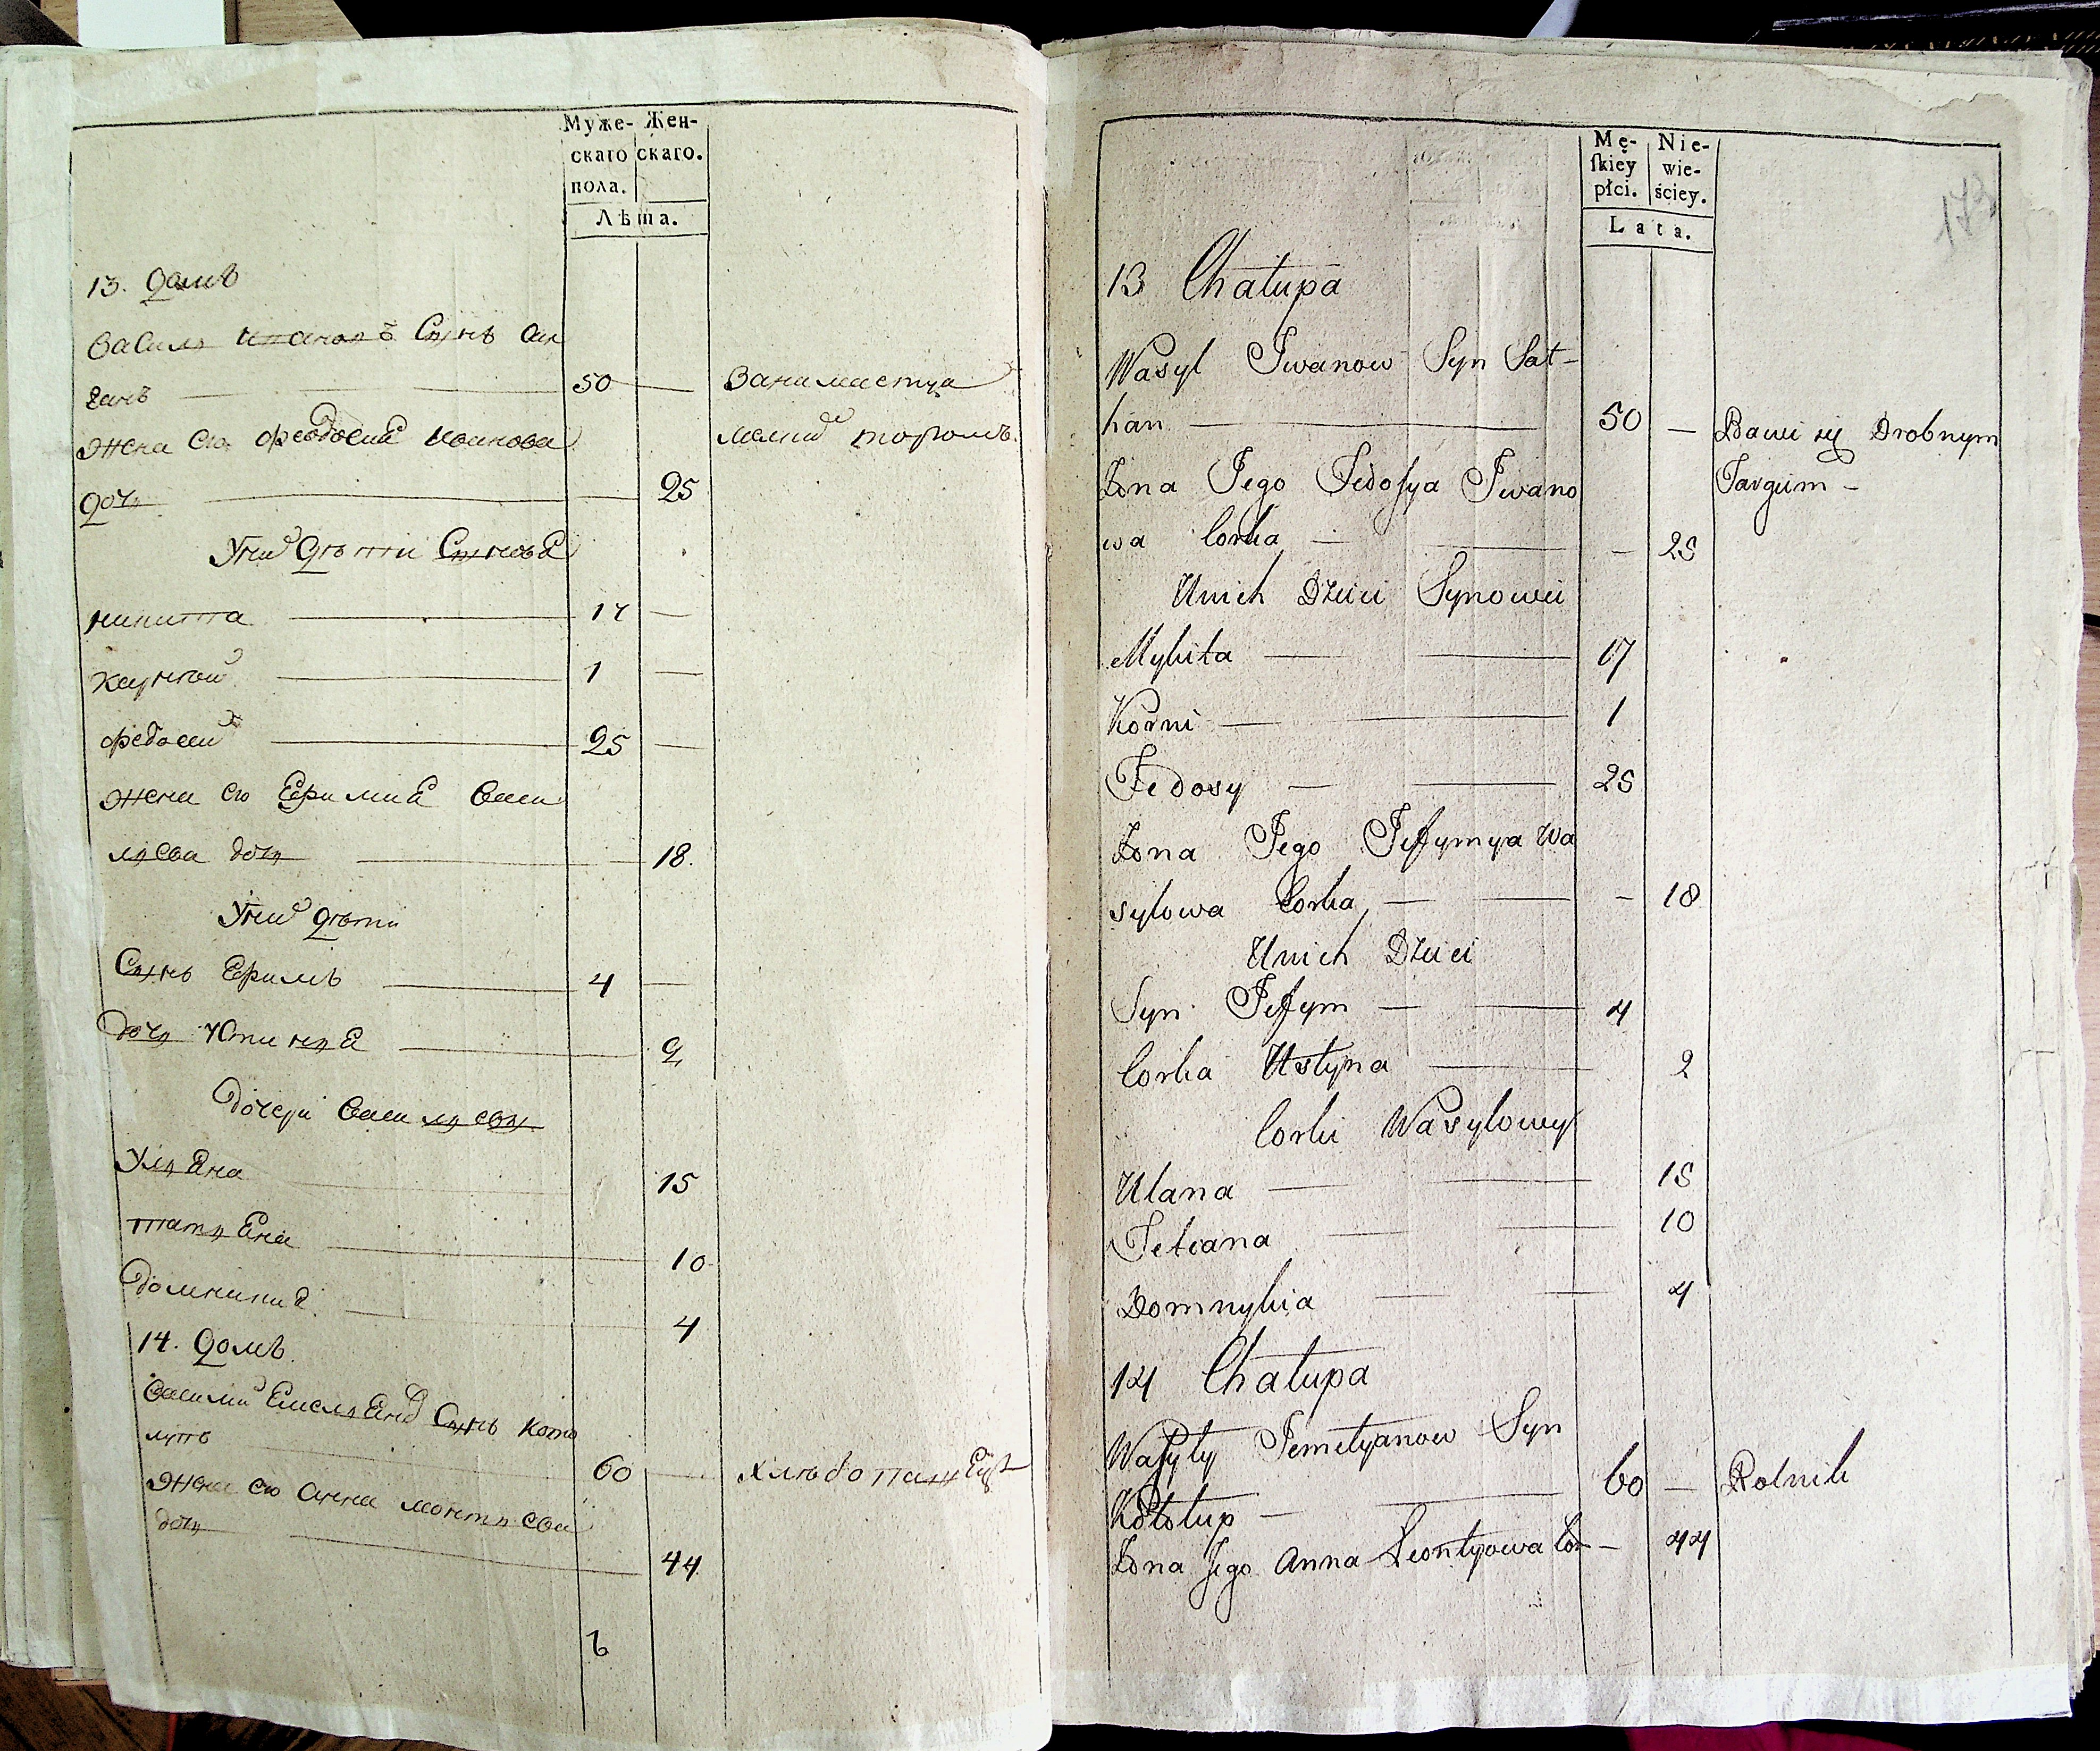 Муже- Жен-
скаго скаго.
пола.
Лѣта.
13. Домъ
Василь Ивановъ Сынъ Сат
ганъ 50 — Занимаетца
Жена его Феодосия Иванова мелкий торгомъ.
дочь — 25
Уних Дѣти Сыновья
Никита 17 —
Корней 1 —
Федосий 25 —
Жена его Ефимия Васи
льева дочь — 18.
Уних дѣти
Сынъ Ефимъ 4 —
Дочь Юстинья 2
Дочери Васильевы
Ульяна 15
Татьяна 10
Домникия 4
14. Домъ
Василий Емельянов Сынъ Коло
лупъ 60 — хлѣбопашец
Жена его Анна Леонтьева
дочь 44
173
Mę- Nie-
ſkiey wie-
płci. ściey.
Lata.
13 Chałupa
Wasyl Iwanow Syn Sat-
han — 50 — Bawi się Drobnym
Zona Jego Fedosya Iwano Targiem -
wa Corka — — 25
Unich Dzieci Synowei
Mykita — 17
Korni — 1
Fedosy — 25
Zona Jego Jefymya Wa
sylowa Corka — — 18
Unich Dzieci
Syn Jefym — 4
Corka Ustyna — 2
Corki Wasylowy
Ulana — 15
Tetiana — 10
Domnykia — 4
14 Chałupa
Wasyly Jemelyanow Syn
Kołołup — 60 — Rolnik
Zona Jego Anna Leontyowa Cor — 44